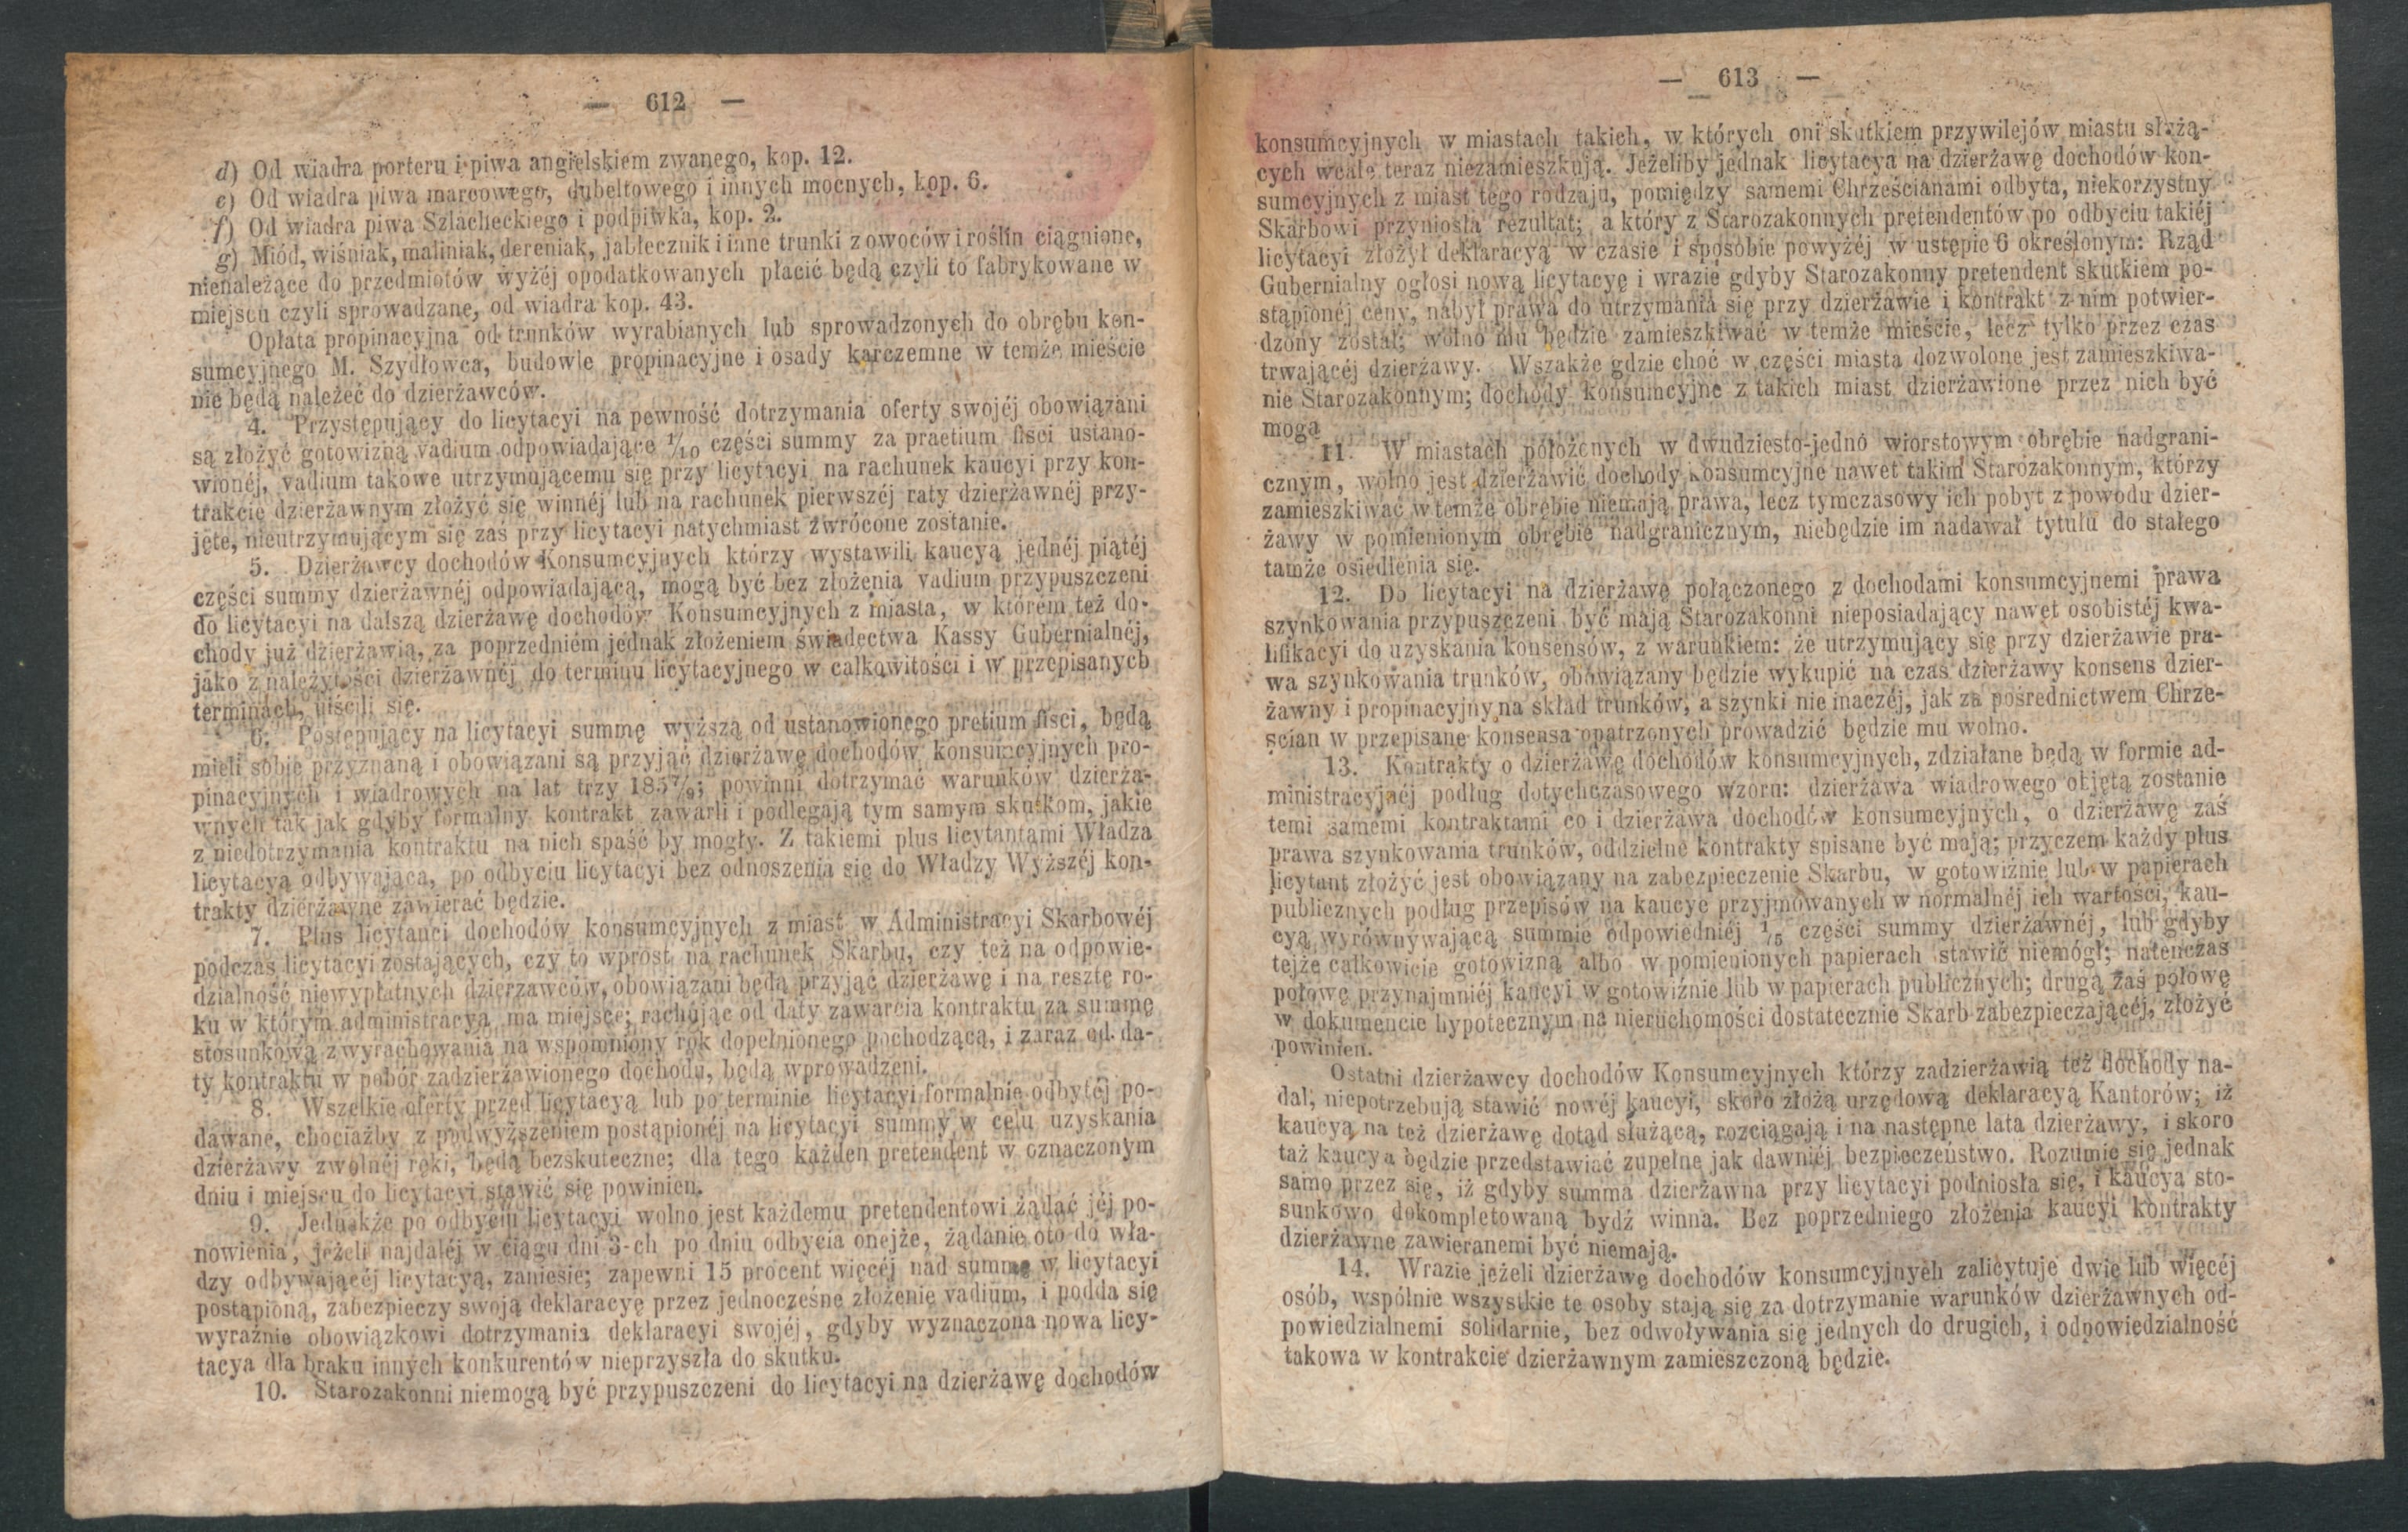 — 612 —
d) Od wiadra porteru i piwa angielskiem zwanego, kop. 12.
e) Od wiadra piwa marcowego, dubeltowego i innych mocnych, kop. 6.
f) Od wiadra piwa Szlacheckiego i podpiwka, kop. 2.
g) Miód, wiśniak, maliniak, dereniak, jabłecznik i inne trunki z owoców i roślin ciągnione,
nienależące do przedmiotów wyżéj opodatkowanych płacić będą czyli to fabrykowane w
miejscu czyli sprowadzane, od wiadra kop. 43.
Opłata propinacyjna od trunków wyrabianych lub sprowadzonych do obrębu kon-
sumcyjnego M. Szydłowca, budowle propinacyjne i osady karczemne w temże mieście
nie będą należeć do dzierżawców.
4. Przystępujący do licytacyi na pewność dotrzymania oferty swojéj obowiązani
są złożyć gotowizną vadium odpowiadające 1/10 części summy za praetium fisci ustano-
wionéj, vadium takowe utrzymującemu się przy licytacyi na rachunek kaucyi przy kon-
trakcie dzierżawnym złożyć się winnéj lub na rachunek pierwszéj raty dzierżawnéj przy-
jęte, nieutrzymującym się zaś przy licytacyi natychmiast zwrócone zostanie.
5. Dzierżawcy dochodów Konsumcyjnych którzy wystawili kaucyą jednéj piątéj
części summy dzierżawnéj odpowiadającą, mogą być bez złożenia vadium przypuszczeni
do licytacyi na dalszą dzierżawę dochodów Konsumcyjnych z miasta, w którem też do-
chody już dzierżawią, za poprzedniém jednak złożeniem świadectwa Kassy Gubernialnéj,
jako z należytości dzierżawnéj do terminu licytacyjnego w całkowitości i w przepisanych
terminach, uiścili się.
6. Postępujący na licytacyi summę wyższą od ustanowionego pretium fisci, będą
mieli sobie przyznaną i obowiązani są przyjąć dzierżawę dochodów konsumcyjnych pro-
pinacyjnych i wiadrowych na lat trzy 1857/9; powinni dotrzymać warunków dzierża-
wnych tak jak gdyby formalny kontrakt zawarli i podlegają tym samym skutkom, jakie
z niedotrzymania kontraktu na nich spaść by mogły. Z takiemi plus licytantami Władza
licytacyą odbywająca, po odbyciu licytacyi bez odnoszenia się do Władzy Wyższéj kon-
trakty dzierżawne zawierać będzie.
7. Plus licytanci dochodów konsumcyjnych z miast w Administracyi Skarbowéj
podczas licytacyi zostających, czy to wprost na rachunek Skarbu, czy też na odpowie-
dzialność niewypłatnych dzierzawców, obowiązani będą przyjąć dzierżawę i na resztę ro-
ku w którym administracya ma miejsce; rachując od daty zawarcia kontraktu za summę
stosunkową z wyrachowania na wspomniony rok dopełnionego pochodzącą, i zaraz od da-
ty kontraktu w pobór zadzierżawionego dochodu, będą wprowadzeni.
8. Wszelkie oferty przed licytacyą lub po terminie licytacyi formalnie odbytéj po-
dawane, chociażby z podwyższeniem postąpionéj na licytacyi summy w celu uzyskania
dzierżawy z wolnéj ręki, będą bezskuteczne; dla tego każden pretendent w oznaczonym
dniu i miejscu do licytacyi stawić się powinien.
9. Jednakże po odbyciu licytacyi wolno jest każdemu pretendentowi żądać jéj po-
nowienia, jeżeli najdaléj w ciągu dni 3-ch po dniu odbycia onejże, żądanie oto do wła-
dzy odbywającéj licytacyą, zaniesie; zapewni 15 procent więcéj nad summę w licytacyi
postąpioną, zabezpieczy swoją deklaracyę przez jednoczesne złożenie vadium, i podda się
wyraźnie obowiązkowi dotrzymania deklaracyi swojéj, gdyby wyznaczona nowa licy-
tacya dla braku innych konkurentów nieprzyszła do skutku.
10. Starozakonni niemogą być przypuszczeni do licytacyi na dzierżawę dochodów
— 613 —
konsumcyjnych w miastach takich, w których oni skutkiem przywilejów miastu służą-
cych wcale teraz niezamieszkują. Jeżeliby jednak licytacya na dzierżawę dochodów kon-
sumcyjnych z miast tego rodzaju, pomiędzy samemi Chrześcianami odbyta, niekorzystny
Skarbowi przyniosła rezultat; a który z Starozakonnych pretendentów po odbyciu takiéj
licytacyi złożył deklaracyą w czasie i sposobie powyżéj w ustępie 6 określonym: Rząd
Gubernialny ogłosi nową licytacyę i wrazie gdyby Starozakonny pretendent skutkiem po-
stąpionéj ceny, nabył prawa do utrzymania się przy dzierżawie i kontrakt z nim potwier-
dzony został; wolno mu będzie zamieszkiwać w temże mieście, lecz tylko przez czas
trwającéj dzierżawy. Wszakże gdzie choć w części miasta dozwolone jest zamieszkiwa-
nie Starozakonnym; dochody konsumcyjne z takich miast dzierżawione przez nich być
mogą
11. W miastach położonych w dwudziesto-jedno wiorstowym obrębie nadgrani-
cznym, wolno jest dzierżawić dochody konsumcyjne nawet takim Starozakonnym, którzy
zamieszkiwać w temże obrębie niemają prawa, lecz tymczasowy ich pobyt z powodu dzier-
żawy w pomienionym obrębie nadgranicznym, niebędzie im nadawał tytułu do stałego
tamże osiedlenia się.
12. Do licytacyi na dzierżawę połączonego z dochodami konsumcyjnemi prawa
szynkowania przypuszczeni być mają Starozakonni nieposiadający nawet osobistéj kwa-
lifikacyi do uzyskania konsensów, z warunkiem: że utrzymujący się przy dzierżawie pra-
wa szynkowania trunków, obowiązany będzie wykupić na czas dzierżawy konsens dzier-
żawny i propinacyjny na skład trunków, a szynki nie inaczéj, jak za pośrednictwem Chrze-
ścian w przepisane konsensa opatrzonych prowadzić będzie mu wolno.
13. Kontrakty o dzierżawę dochodów konsumcyjnych, zdziałane będą w formie ad-
ministracyjnéj podług dotychczasowego wzoru: dzierżawa wiadrowego objętą zostanie
temi samemi kontraktami co i dzierżawa dochodów konsumcyjnych, o dzierżawę zaś
prawa szynkowania trunków, oddzielne kontrakty spisane być mają; przyczem każdy plus
licytant złożyć jest obowiązany na zabezpieczenie Skarbu, w gotowiźnie lub w papierach
publicznych podług przepisów na kaucye przyjmowanych w normalnéj ich wartości, kau-
cyą wyrównywającą summie odpowiedniéj 1/5 części summy dzierżawnéj, lub gdyby
tejże całkowicie gotowizną albo w pomienionych papierach stawić niemógł; natenczas
połowę przynajmniéj kaucyi w gotowiźnie lub w papierach publicznych; drugą zaś połowę
w dokumencie hypotecznym na nieruchomości dostatecznie Skarb zabezpieczającéj, złożyć
powinien.
Ostatni dzierżawcy dochodów Konsumcyjnych którzy zadzierżawią też dochody na-
dal, niepotrzebują stawić nowéj kaucyi, skoro złożą urzędową deklaracyą Kantorów; iż
kaucyą na też dzierżawę dotąd służącą, rozciągają i na następne lata dzierżawy, i skoro
taż kaucya będzie przedstawiać zupełne jak dawniéj bezpieczeństwo. Rozumie się jednak
samo przez się, iż gdyby summa dzierżawna przy licytacyi podniosła się, i kaucya sto-
sunkowo dokompletowaną bydź winna. Bez poprzedniego złożenia kaucyi kontrakty
dzierżawne zawieranemi być niemają.
14. Wrazie jeżeli dzierżawę dochodów konsumcyjnych zalicytuje dwie lub więcéj
osób, wspólnie wszystkie te osoby stają się za dotrzymanie warunków dzierżawnych od-
powiedzialnemi solidarnie, bez odwoływania się jednych do drugich, i odpowiedzialność
takowa w kontrakcie dzierżawnym zamieszczoną będzie.